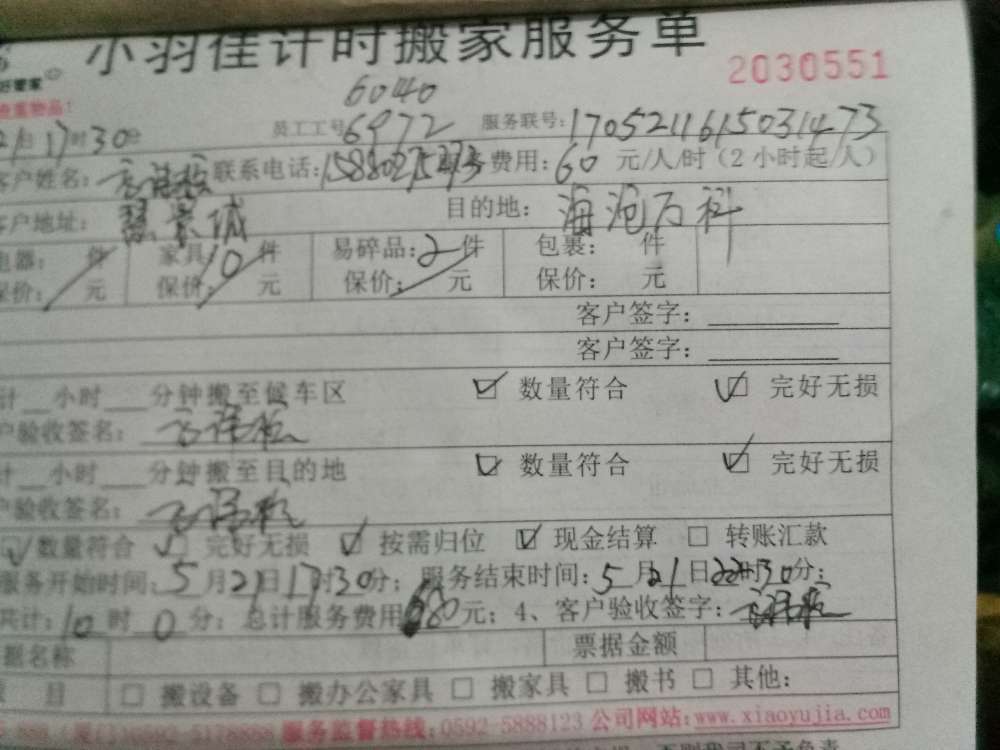 小羽佳计时搬家服务单
好管家
2030551
贵重物品!
6040
21日17时30分 员工工号 6972 服务联号: 1705211615031473
客户姓名: 联系电话: 费用: 60 元/人/时 (2小时起/人)
客户地址: 景城 目的地: 海沧万科
电器: 件 家具 10 件 易碎品: 2 件 包裹: 件
保价: 元 保价: 元 保价: 元 保价: 元
客户签字:
客户签字:
计 小时 分钟搬至候车区 ☑ 数量符合 ☑ 完好无损
户验收签名:
计 小时 分钟搬至目的地 ☑ 数量符合 ☑ 完好无损
户验收签名:
☑ 数量符合 ☑ 完好无损 ☑ 按需归位 ☑ 现金结算 □ 转账汇款
服务开始时间: 5月21日17时30分; 服务结束时间: 5月21日22时30分;
共计: 10 时 0 分; 总计服务费用 元; 4、客户验收签字:
据名称 票据金额
项目 □ 搬设备 □ 搬办公家具 □ 搬家具 □ 搬书 □ 其他:
服务监督热线: 0592-5888123 公司网站: www.xiaoyujia.com